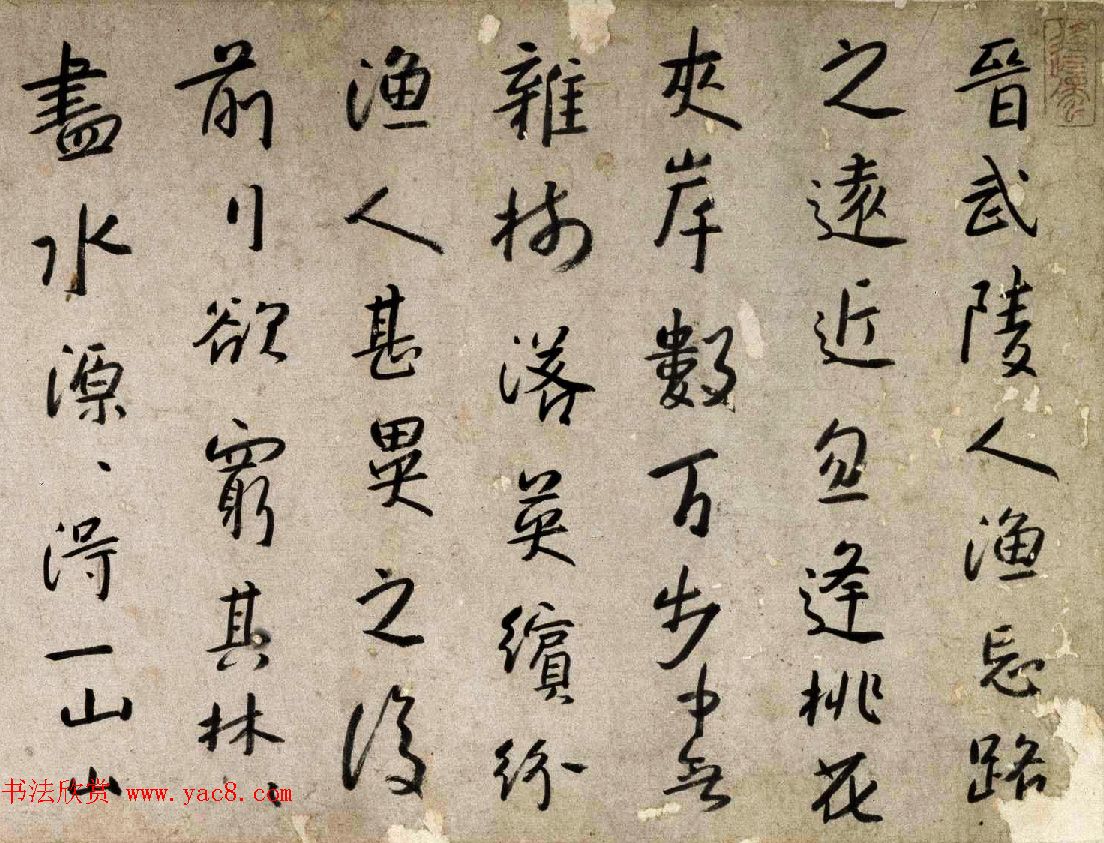 晉武陵人漁忘路
之遠近忽逢桃花
夾岸數万步中無
雜樹落英繽紛
漁人甚異之復
前行欲窮其林、
盡水源、得一山山
书法欣赏 www.yac8.com